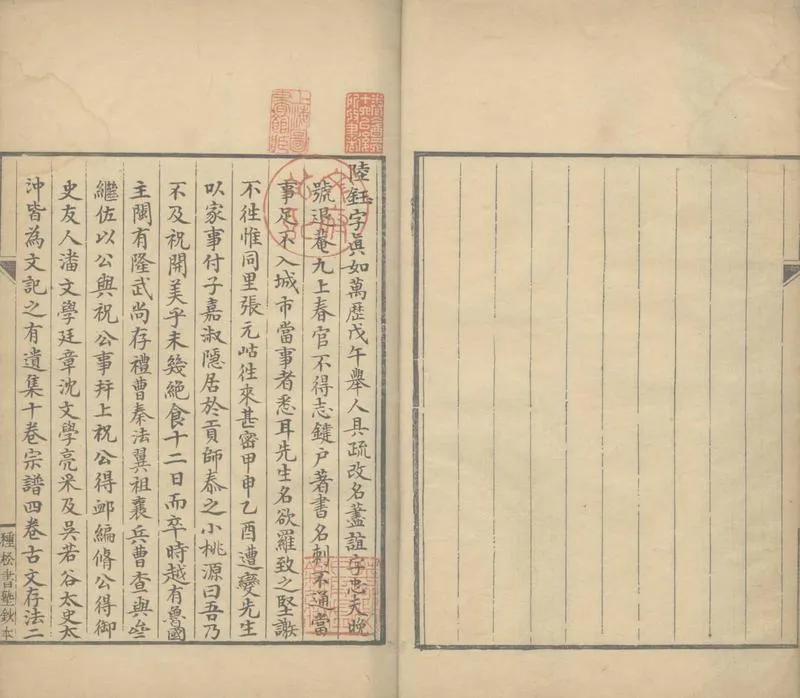 陸鈺字真如萬歷戊午舉人具疏改名藎誼字忠夫晚
號退菴九上春官不得志鍵户著書名刺不通當
事足不入城市當事者悉耳先生名欲羅致之堅謝
不徃惟同里張元岵徃來甚密甲申乙酉遭變先生
以家事付子嘉淑隱居於貢師泰之小桃源曰吾乃
不及祝開美乎未幾絶食十二日而卒時越有魯國
主閩有隆武尚存禮曹秦法翼祖襄兵曹查與
繼佐以公與祝公事并上祝公得卹編脩公得御
史友人潘文學廷章沈文學亮采及吳若谷太史太
沖皆為文記之有遺集十卷宗譜四卷古文存法二
種松書塾鈔本
上海圖書館藏